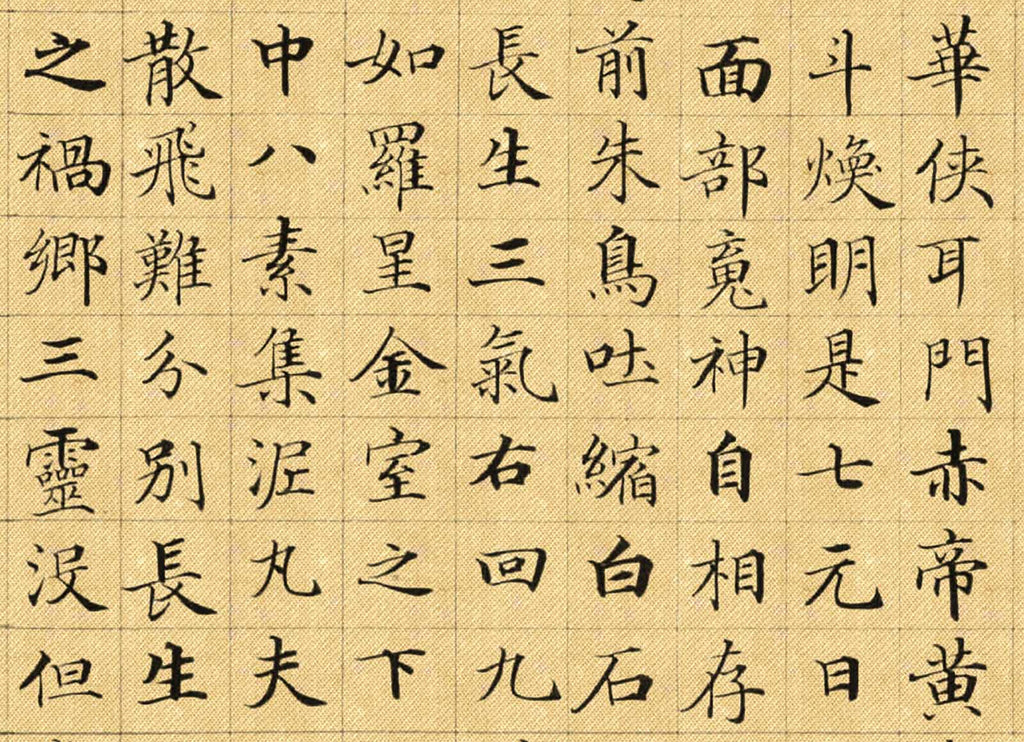 華侠耳門赤帝黄
斗煥明是七元日
面部䰟神自相存
前朱鳥吐縮白石
長生三氣右回九
如羅呈金室之下
中八素集泥丸夫
散飛難分別長生
之禍鄉三靈没但